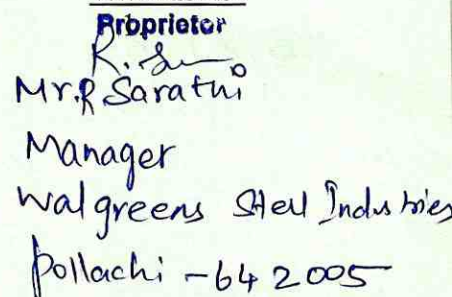 Proprietor
Mr.R Sarathi
Manager
Walgreens Steel Industries
Pollachi - 642005